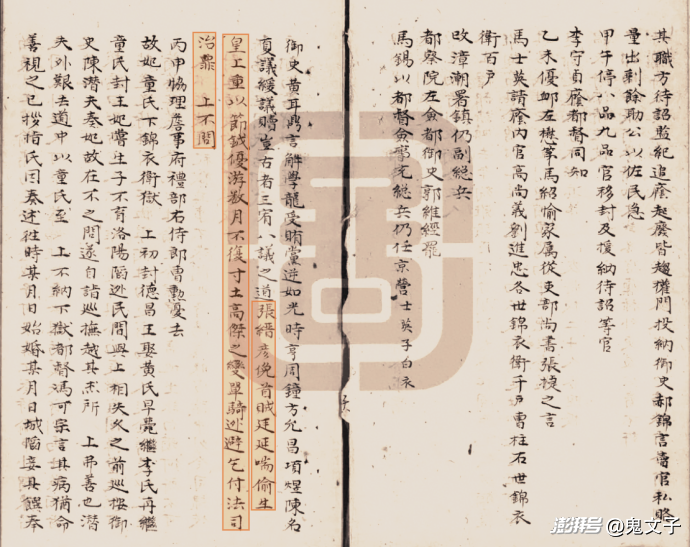 其職方待詔載紀追廢起廢皆趨權門投納御史郝錦言壽官私賂
量出剩餘助公以佐民急
甲午停八品九品官移封及援納待詔等官
李守貞廕都督同知
乙未優卹左懋第馬紹愉家屬從吏部尚書張捷之言
馬士英請廕內官高尚義劉進忠各世錦衣衛千戶曹柱石世錦衣
衛百戶
改漳潮署鎮仍副總兵
都察院左僉都御史郭維經罷
馬錫以都督僉事充總兵仍任京營士英子白衣
御史黃耳鼎言解學龍受賄黨逆如光時亨周鐘方允昌項煜陳名
夏議緩議贖豈古者三宥八議之道張縉彥俛首賊廷延喘偷生
皇上重以節鉞優游數月不復寸土高傑之變單騎逃避乞付法司
治罪 上不問
丙申協理詹事府禮部右侍郎曹勳憂去
故妃童氏下錦衣衛獄 上初封德昌王娶黃氏早薨繼李氏再繼
童氏封王妃嘗生子不育洛陽陷逃民間與上相失久之前巡按御
史陳潛夫奏妃故在不之問遂自詣巡撫越其杰所 上弗善也潛
夫外艱去道中以童氏至 上不納下獄都督馮可宗言其病猶命
善視之已拶指氏因奏述往時某月日始婚某月日城陷妾具饌奉
澎湃号 @鬼文子